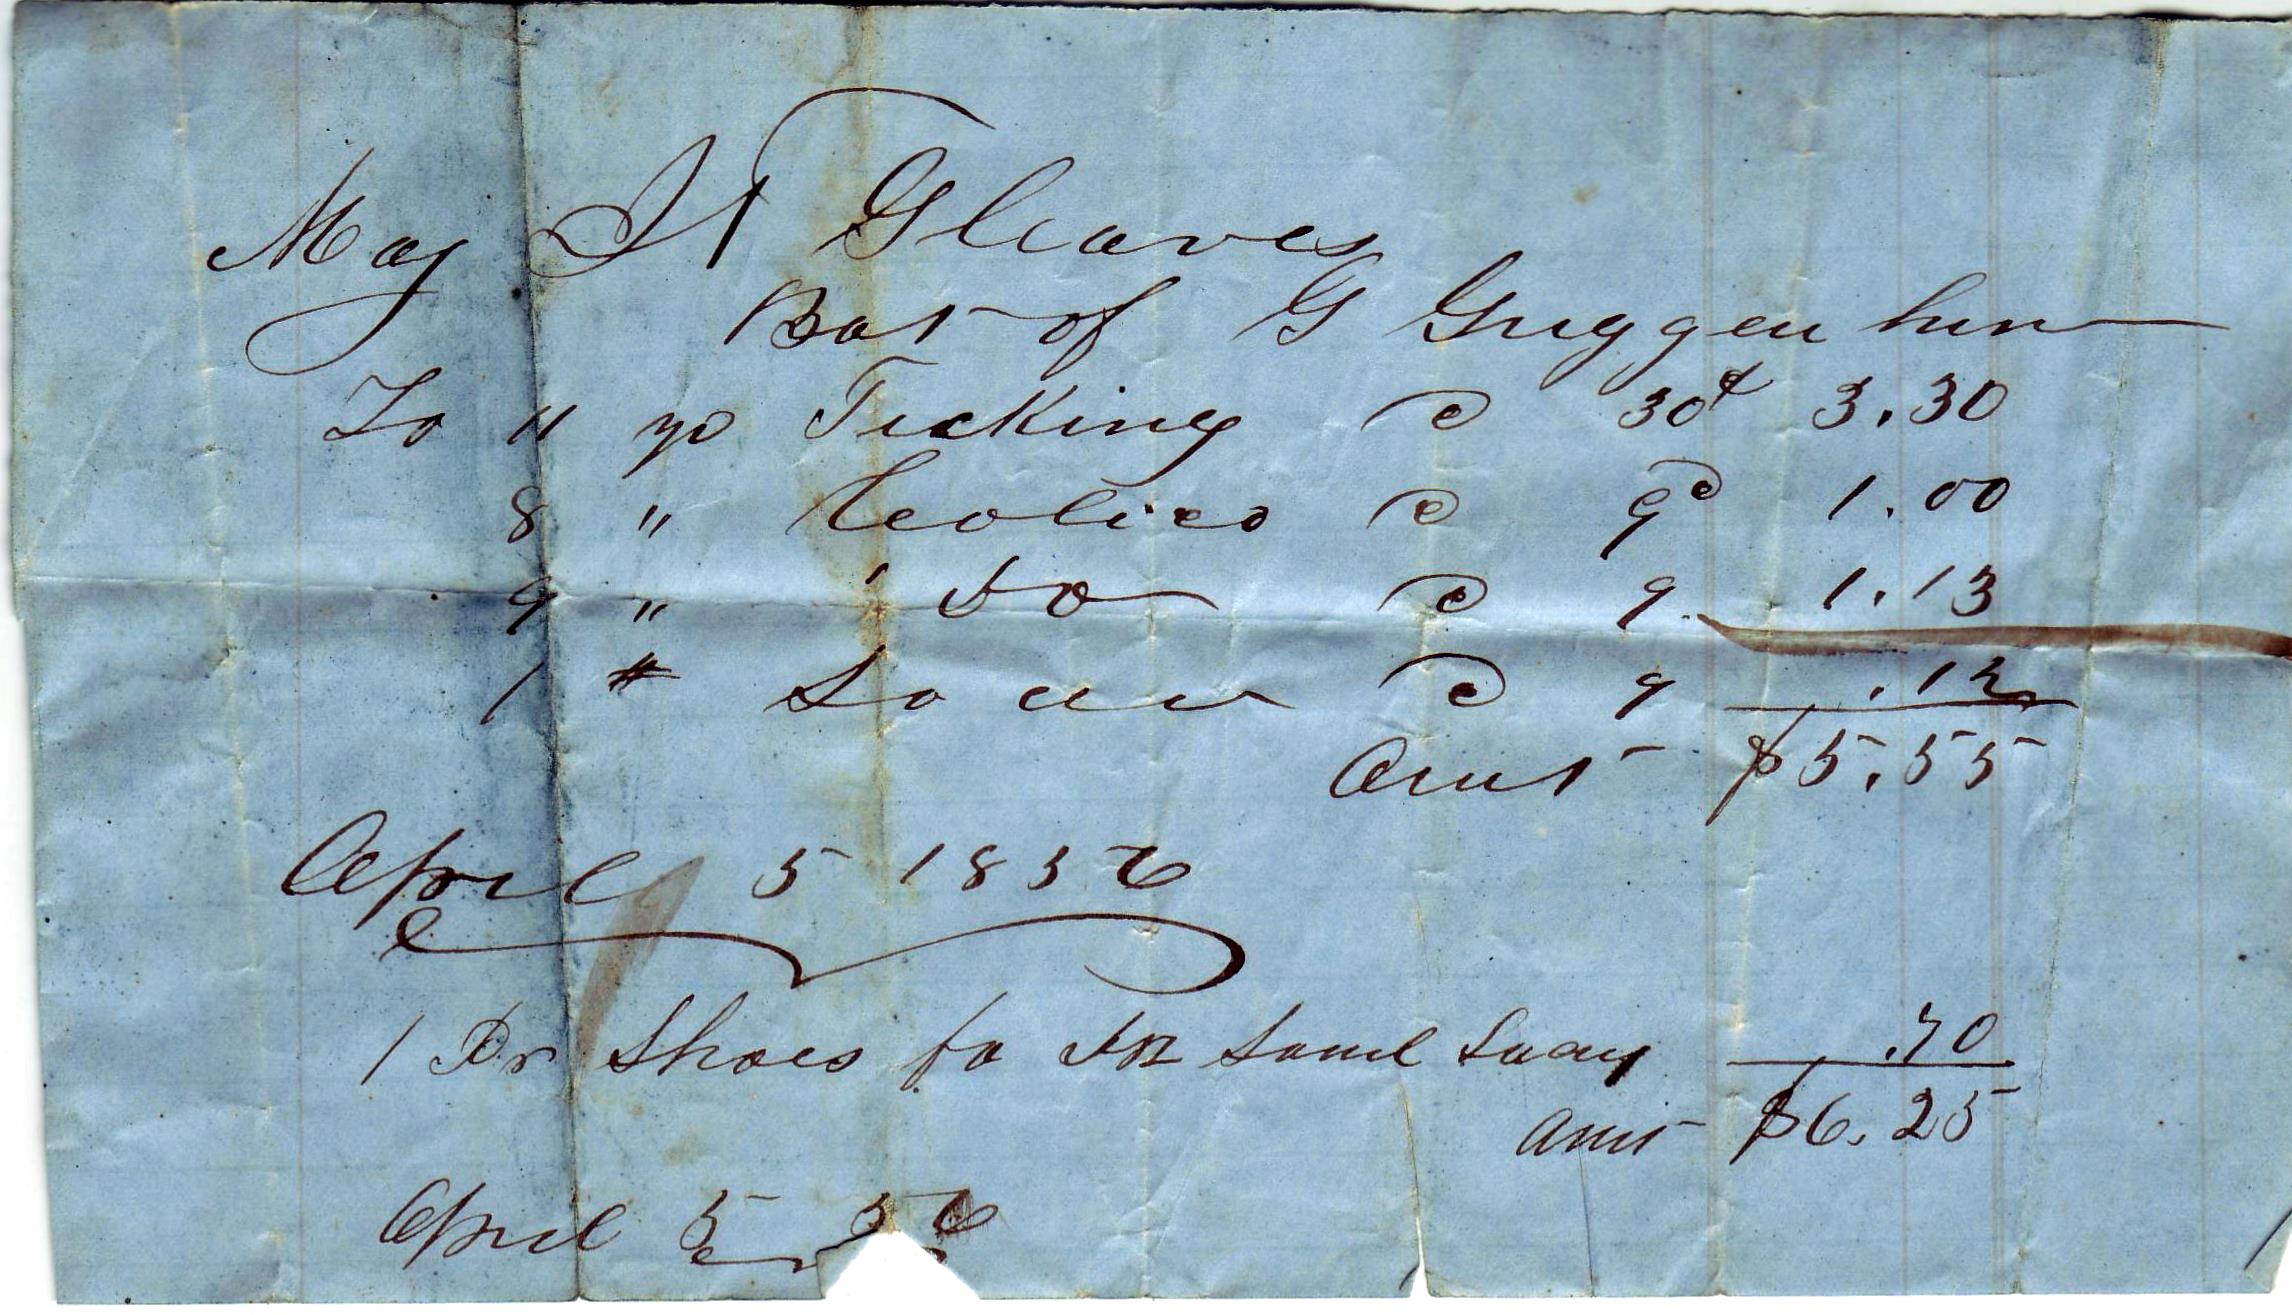 Maj J T Gleaves
Bot of G Guggenhim
To 11 yd Ticking @ 30¢ 3.30
8 " Colico @ 9d 1.00
9 " Do @ 9 1.13
1 # @ 9 .12
Amt $5.55
April 5 1856
1 Pr Shoes fo Same .70
Amt $6.25
April 5 56